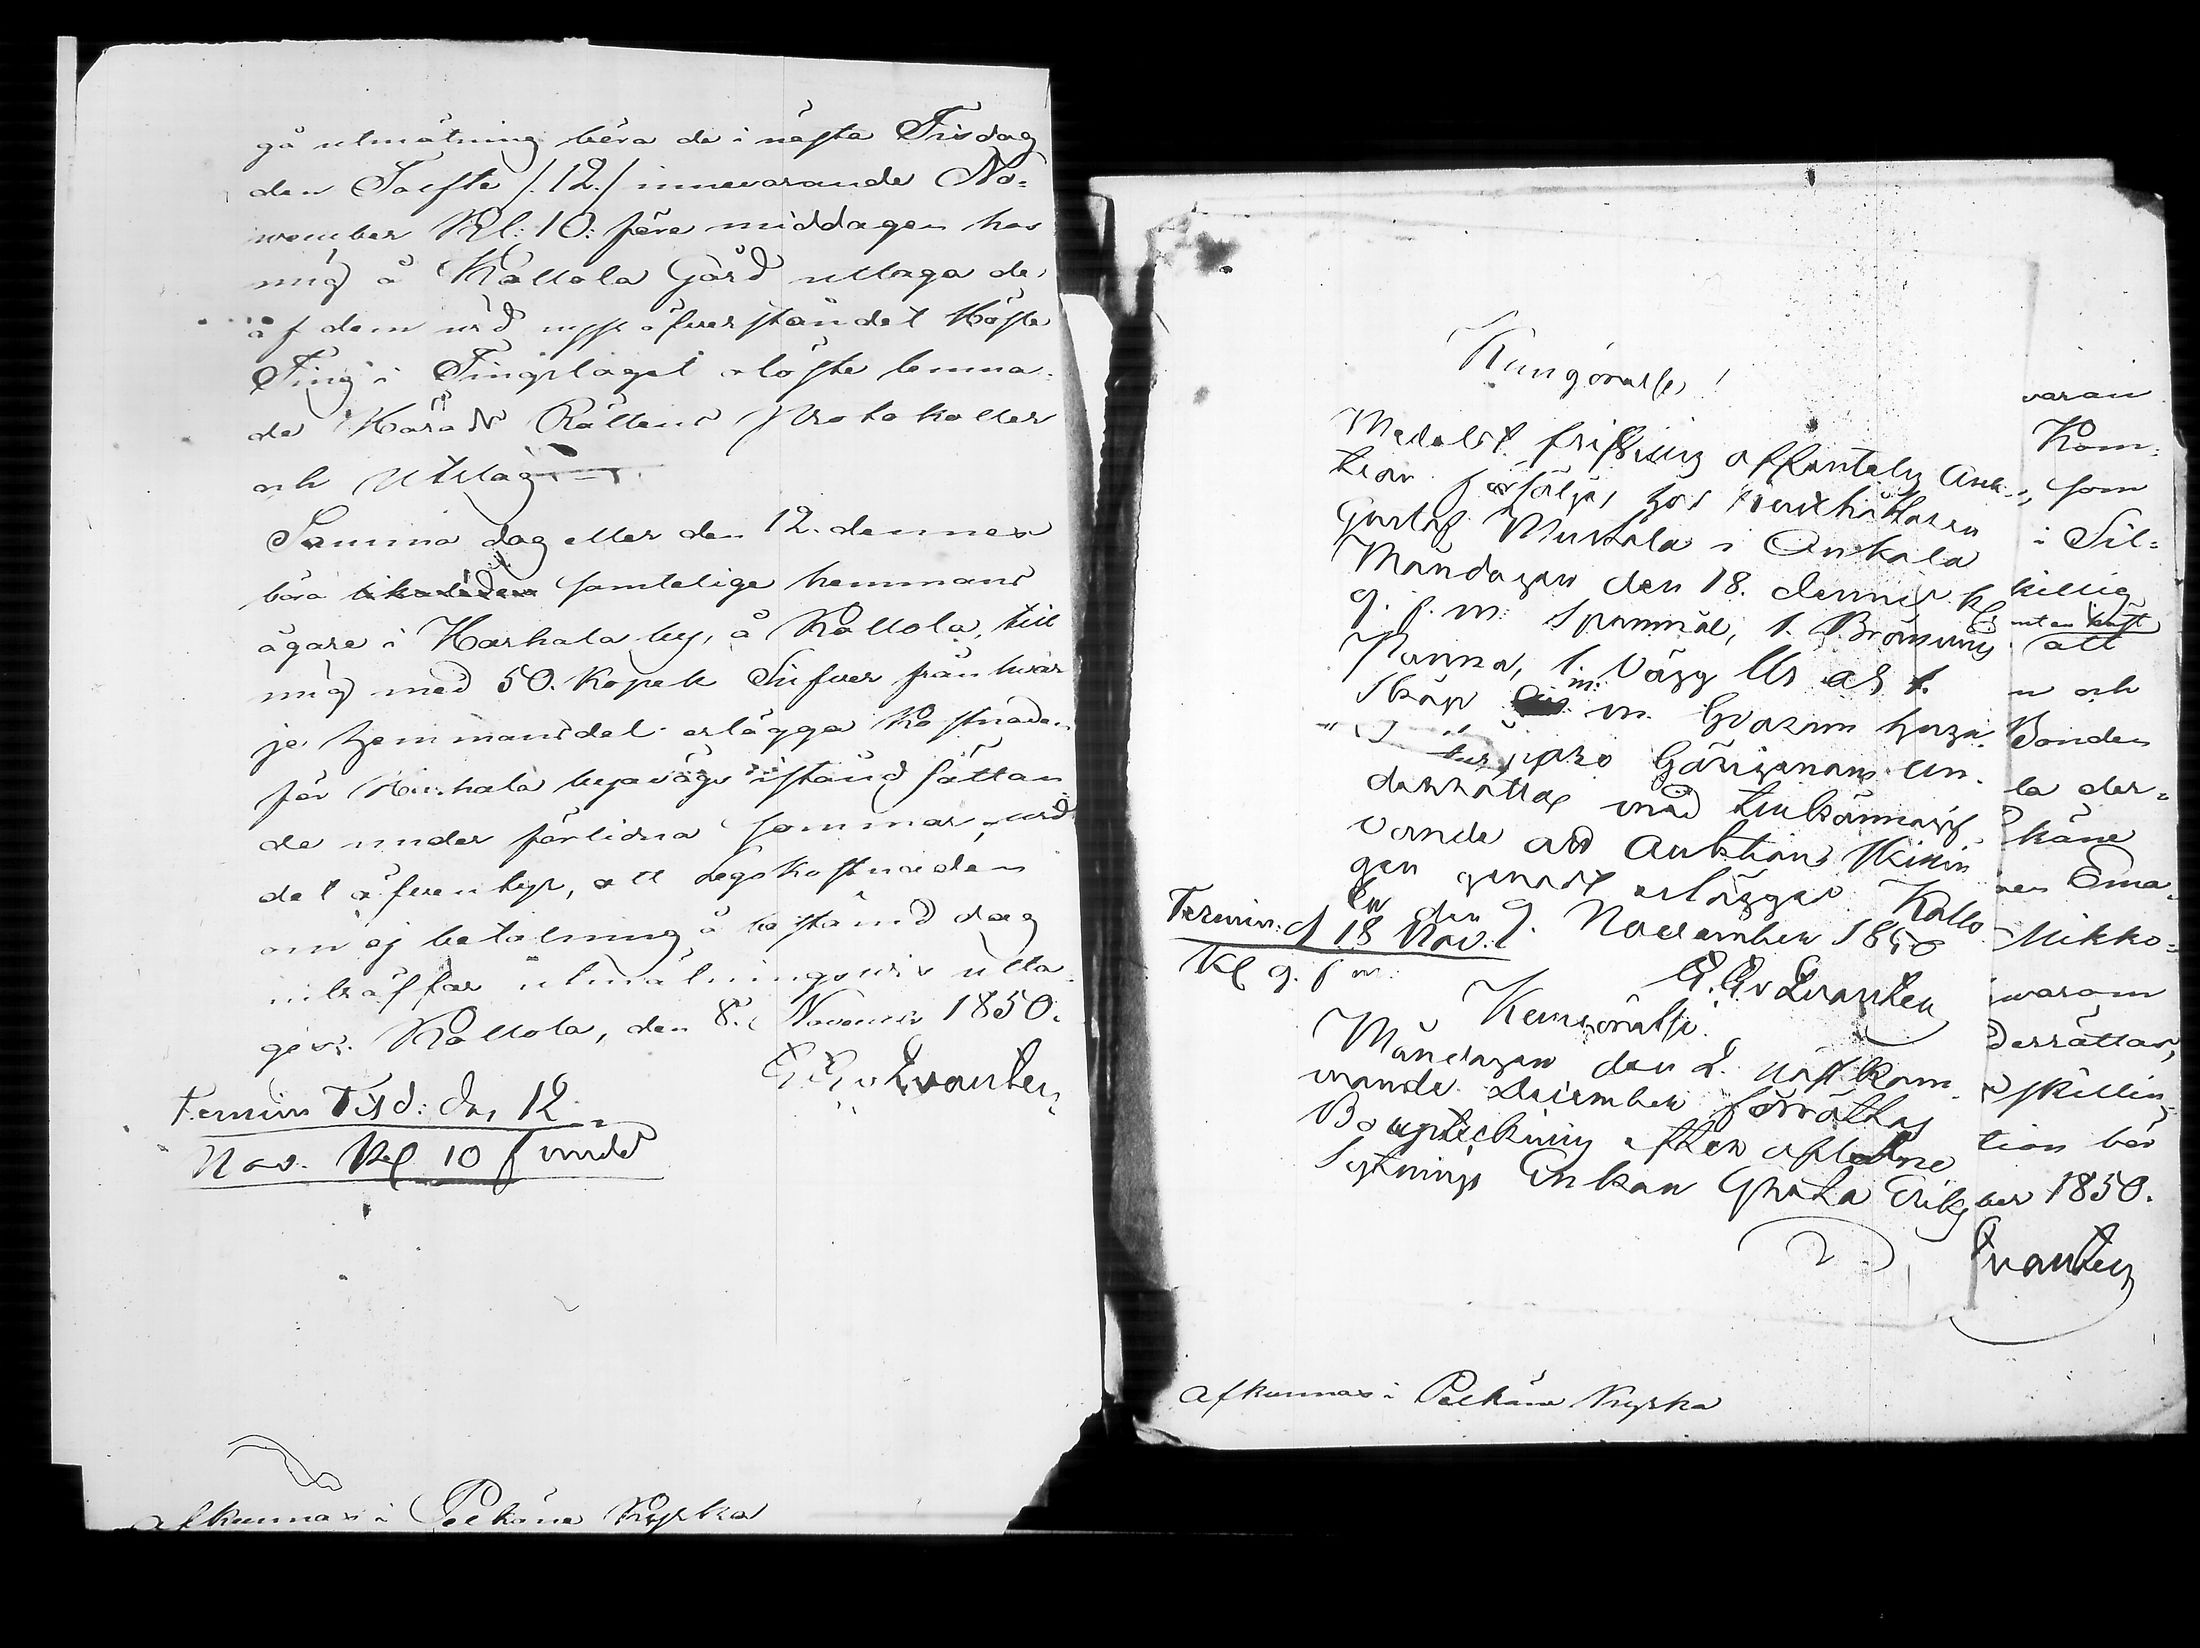 gå utmätning böra de i nästa Tisdag
den Tolfte /.12./ innevarande No=
wember Kl: 10: före middagen hos
mig å Kållola Gård uttaga de
af dem wid nyss öfverståndet Höste
Ting i Tingslaget olöste lemna=
de Härads Rättens Protokoller
och Utslag
Samma dag eller den 12. dennes
böra samtelige hemmans
ägare i Harhala by, å Kållola, till
mig med 50. Kopek Silfver från hvar
je hemmansdel erlägga Kostnaden
för Harhala byawägs iståndsättan
de under förlidna sommar, wid
det äfventyr, att Legokostnaden
om ej betalning å bestämd dag
inträffar utmätningswis utta
ges. Kållola, den 8. November 1850.
G. G. v Qvanten
Termin Tisd: den 12
Nov. Kl 10 f midd
afkunnas i Pelkäne Kyrka
Kungörelse!
Medelst frivillig offentelig Auk=
tion försäljes hos
Gustaf Mustala i Onkala
Måndagen den 18. dennes kl
9. f. m. Spanmål, 1. Brännvins
Panna, 1. Vägg Ur, 1.
Skåp m.
Gärningman un
derrättas med tillkännagif
vande att Auktions Skillin
gen genast erlägges. Kållo
la den 9. November 1850
G. G. v Qvanten
Termin: d 18 Nov.
Kl 9. f m.
Kungörelse.
Måndagen den 2. nästkom
mande December förrättas
Bouptekning efter aflidne
Sytnings Enkan Greta Eriks
2
afkunnas i Pelkäne Kyrka
varan
Kom=
som
i Sil=
killig
att
n och
Bonden
la der=
käne
nen Ema=
Mikko=
warom
derrättas,
skillin
tion bör
ber 1850.
Qvanten